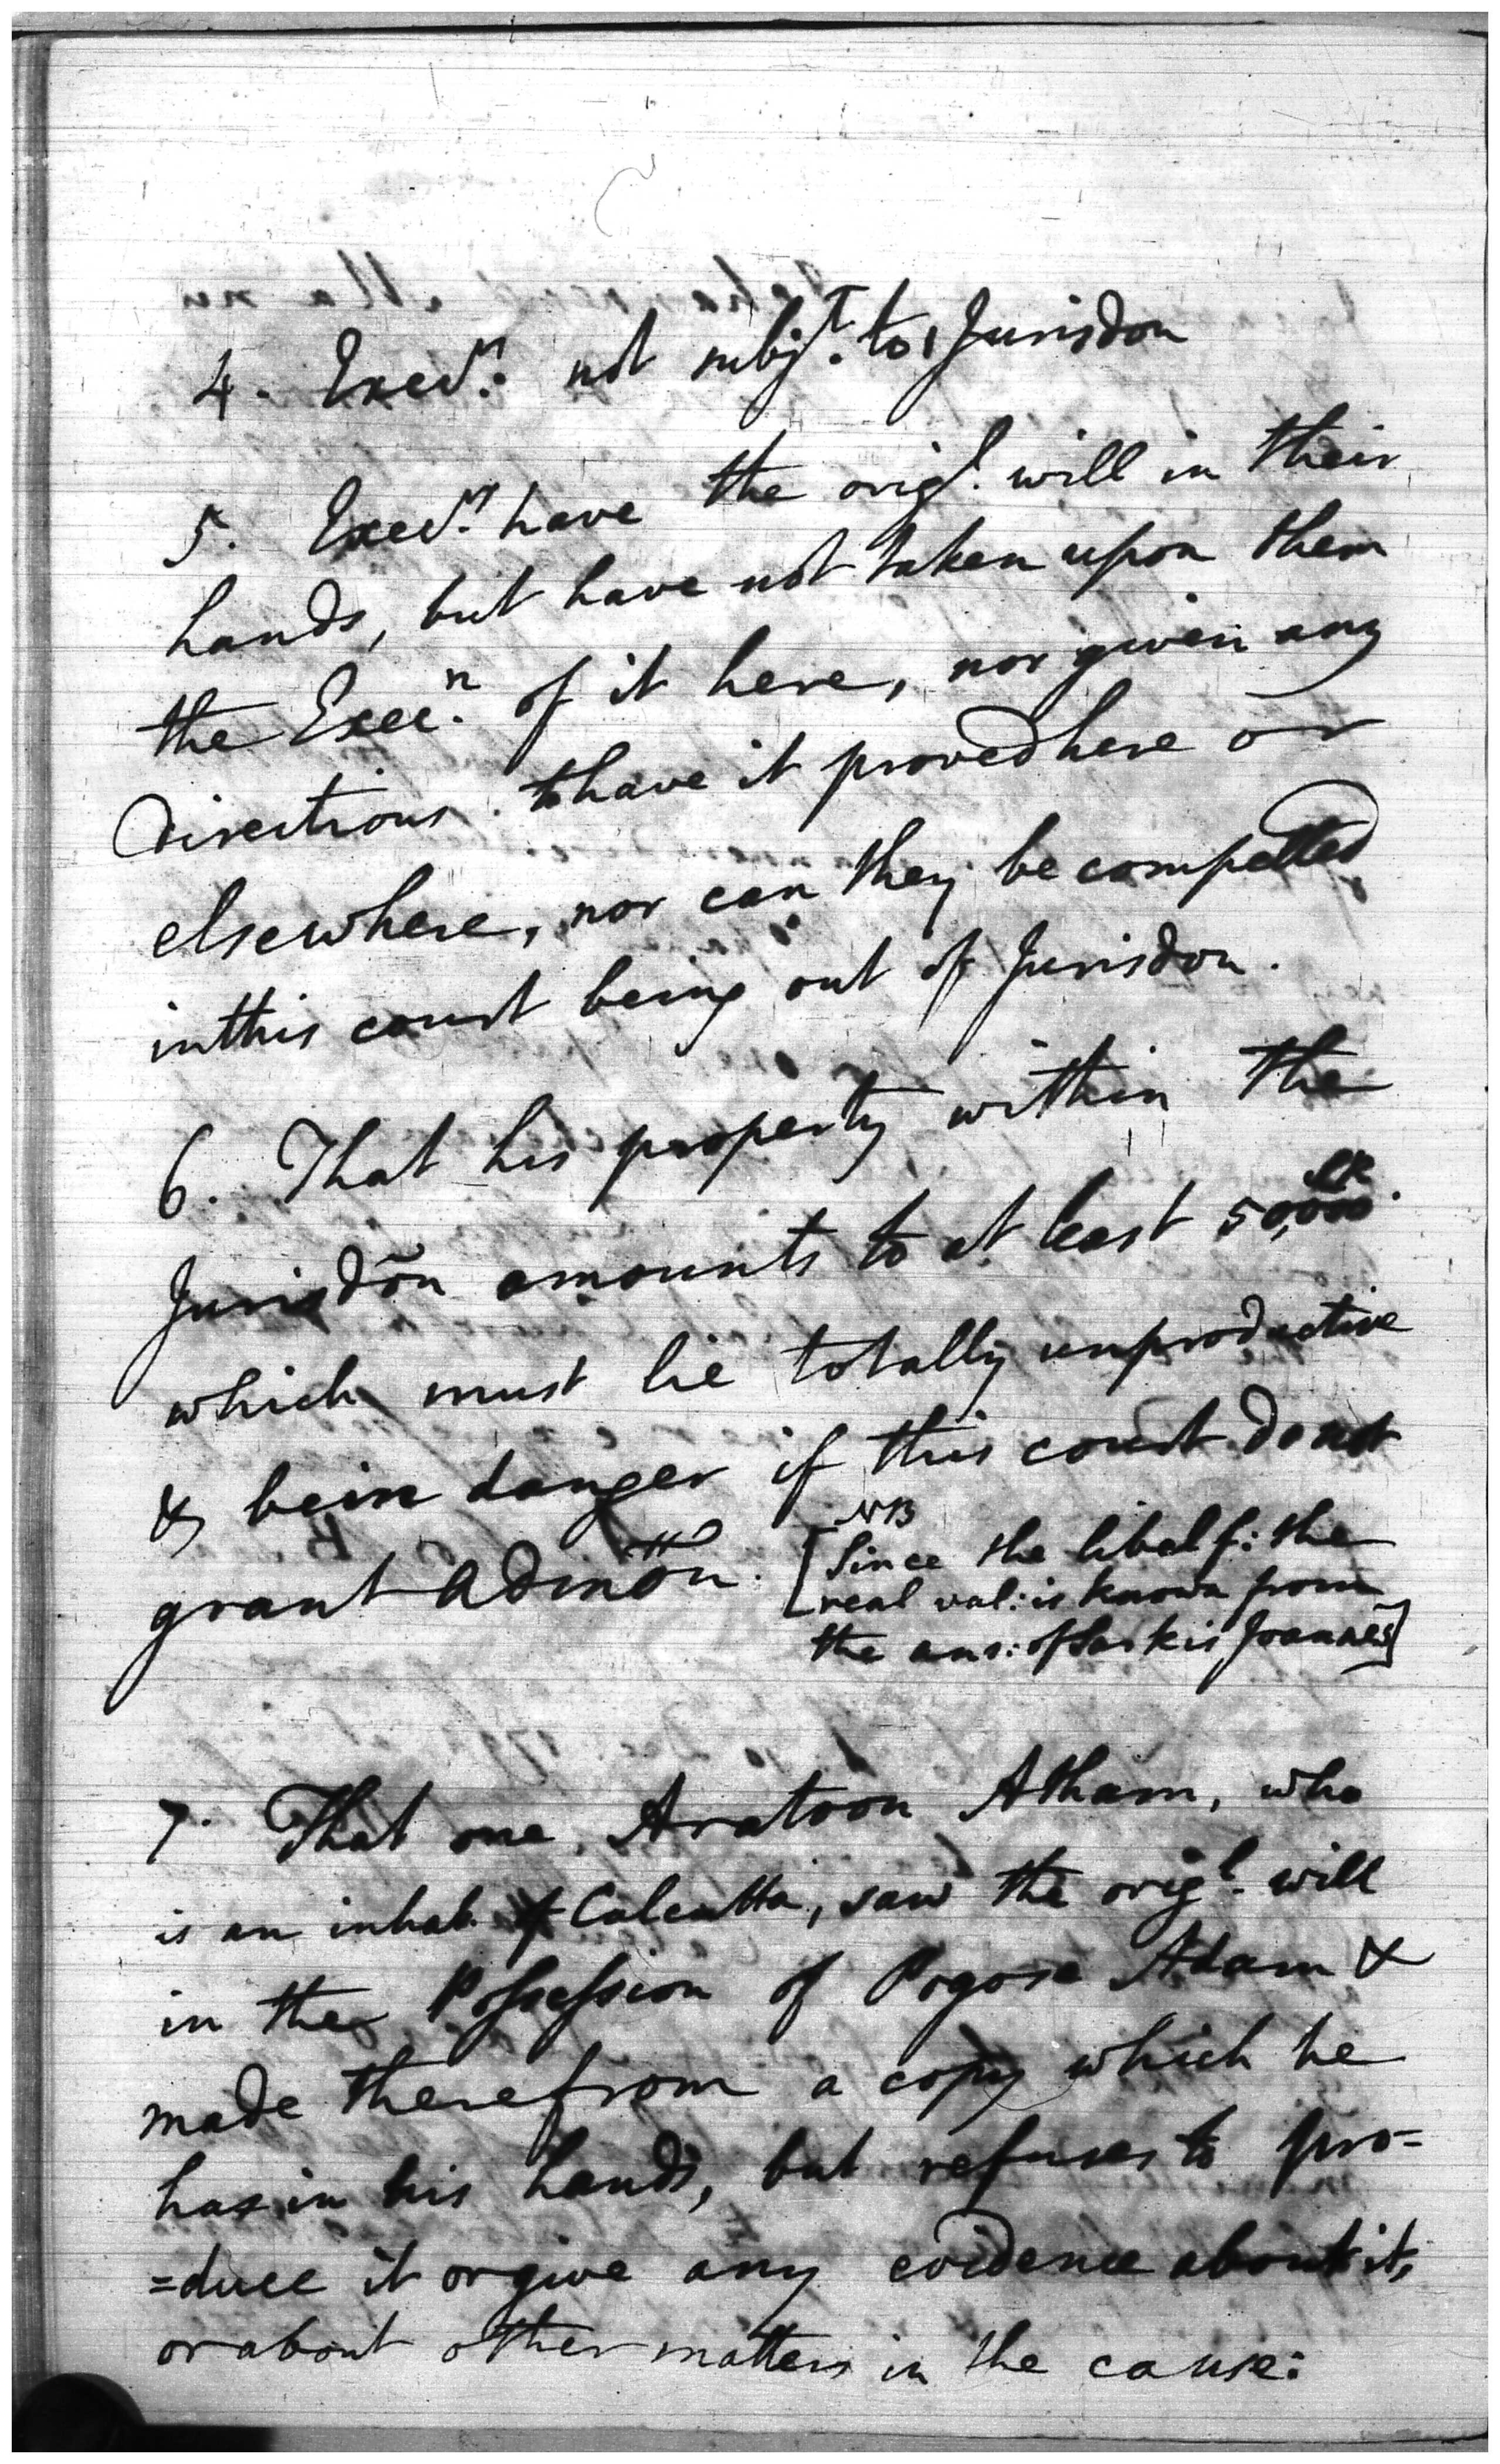 4. Exec.rs not subj.t to Jurisdon
5. Exec.rs have the orig.l will in their
hands, but have not taken upon them
the Exec.n of it here, nor given any
directions to have it proved here or
elsewhere, nor can they be compelled
in this court being out of Jurisdon.
6. That his property within the
Jurisdon amounts to at least 50,000
which must lie totally unproductive
& be in danger if this court do not
grant Admon.
[NB
Since the libel f: the
real val: is known from
the ans: of Sarkis Joannes]
7. That one Aratoon Atham, who
is an inhab. of Calcutta, saw the orig.l will
in the Possession of Pogose Adam &
made therefrom a copy which he
has in his hands, but refuses to pro=
=duce it or give any evidence about it,
or about other matters in the cause: